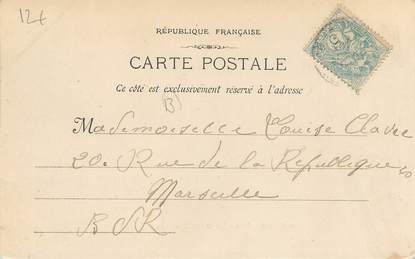 12+
RÉPUBLIQUE FRANÇAISE
CARTE POSTALE
Ce côté est exclusivement réservé à l'adresse
(B)
Mademoiselle Louise
20. Rue de la République
Marseille
B D R